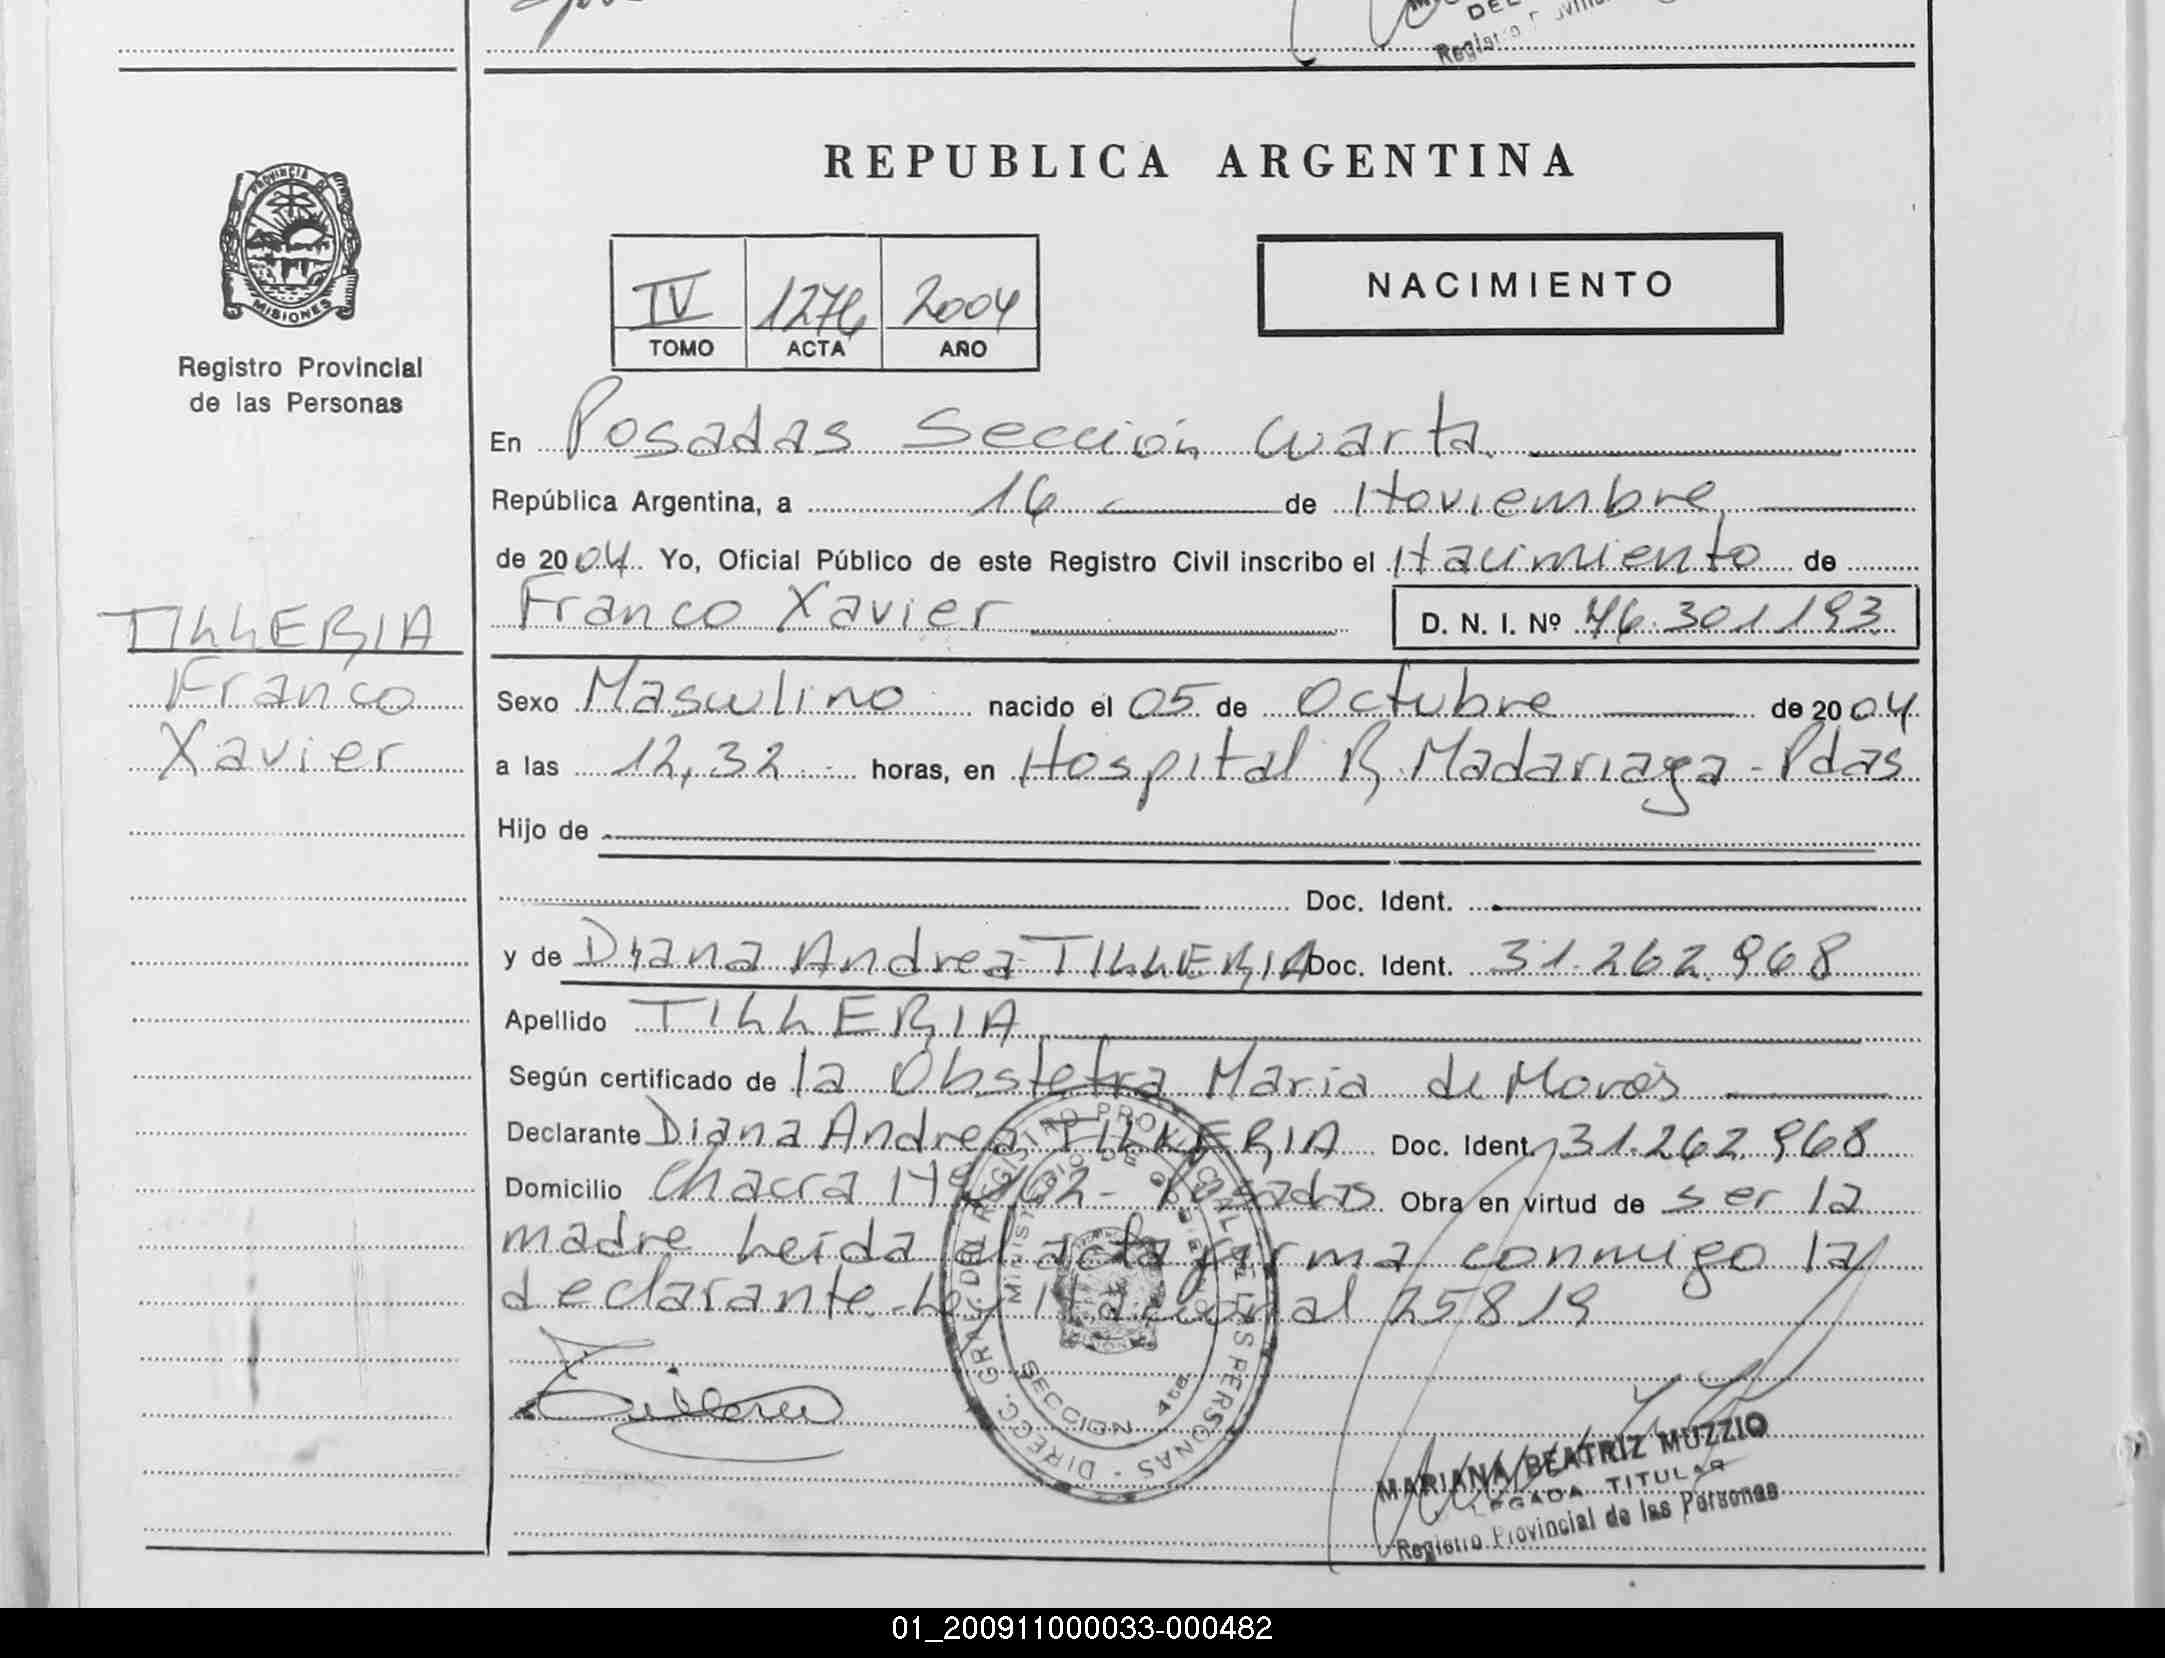 DEL
Registro
REPUBLICA ARGENTINA
PROVINCIA DE
MISIONES
Registro Provincial
de las Personas
IV 1276 2004
TOMO ACTA AÑO
NACIMIENTO
En Posadas Sección Cuarta.
República Argentina, a 16 de Noviembre
de 2004. Yo, Oficial Público de este Registro Civil inscribo el Nacimiento de
Franco Xavier D. N. I. Nº 46.301.193
TILLERIA
Franco
Xavier
Sexo Masculino nacido el 05 de Octubre de 2004
a las 12,32 horas, en Hospital R. Madariaga - Pdas
Hijo de
Doc. Ident.
y de Diana Andrea TILLERIA Doc. Ident. 31.262.968
Apellido TILLERIA
Según certificado de la Obstetra Maria de
Declarante Diana Andrea TILLERIA Doc. Ident. 31.262.968
Domicilio Chacra 149 - Posadas Obra en virtud de ser la
madre Leída el acta firma conmigo la
declarante. Ley Nacional 25819
DIRECC. GRAL. DEL REGISTRO PROVINCIAL DE LAS PERSONAS
MINISTERIO DE GOBIERNO
SECCION 4ta.
MARIANA BEATRIZ MUZZIO
DELEGADA TITULAR
Registro Provincial de las Personas
01_200911000033-000482